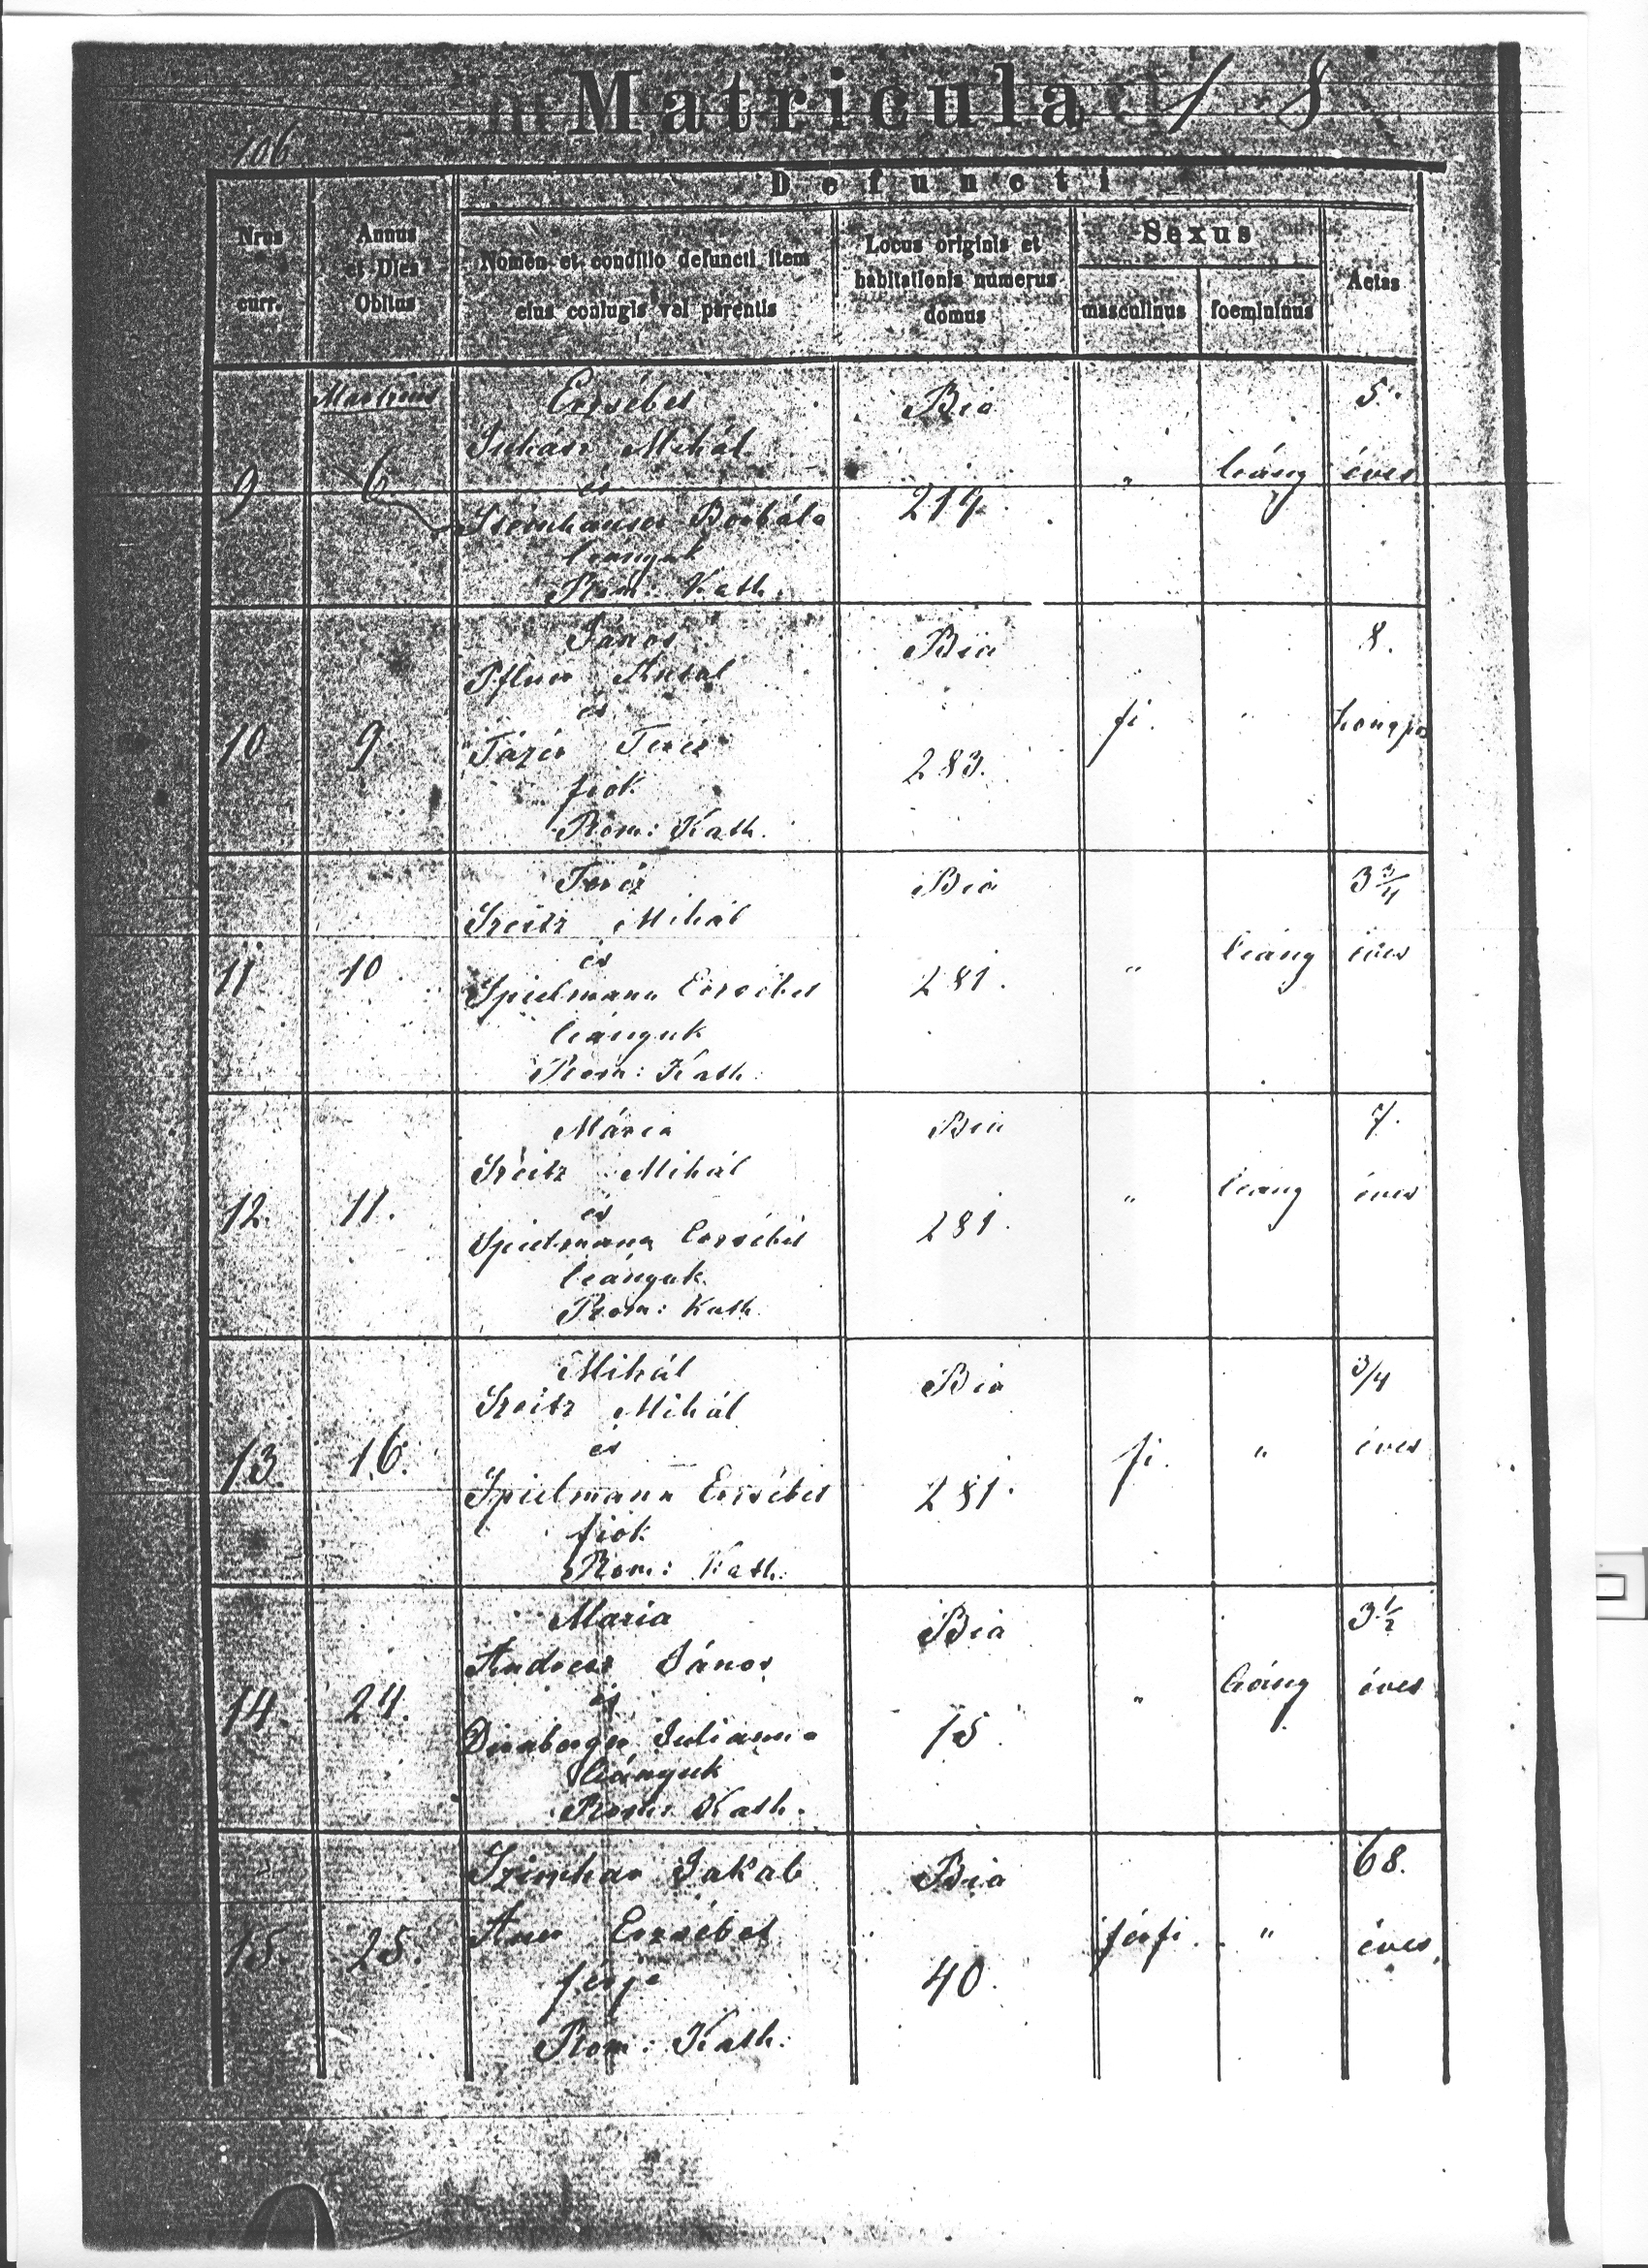 Matricula 1 8
106
Defuncti
Nrus curr.
Annus et Dies Obitus
Nomen et conditio defuncti item eius coniugis vel parentis
Locus originis et habitationis numerus domus
Sexus
masculinus
foemininus
Aetas
Martius
Erzsébet
Bia
5.
Mihál
és
9
6
219
"
leány
éves
Borbála
leányuk
Rom. Kath.
János
Bia
8.
Antal
és
10
9.
fi.
"
Teréz
283.
fiok
Rom: Kath.
Teréz
Bia
3 3/4
Szeitz Mihál
és
11
10
"
leány
éves
Spielmann Erzsébet
281.
leányuk
Rom: Kath:
Mária
Bia
7.
Szeitz Mihál
és
12.
11.
"
leány
éves
Spielmann Erzsébet
281.
leányuk
Rom: Kath.
Mihál
Bia
3/4
Szeitz Mihál
és
13
16.
fi.
"
éves
Spielmann Erzsébet
281.
fiok
Rom: Kath:
Maria
Bia
3 1/2
János
és
14.
24.
"
leány
éves
15.
leányuk
Rom: Kath.
Jakab
Bia
68.
15.
25.
Erzsébet
férfi.
"
éves
férje
40.
Rom: Kath: